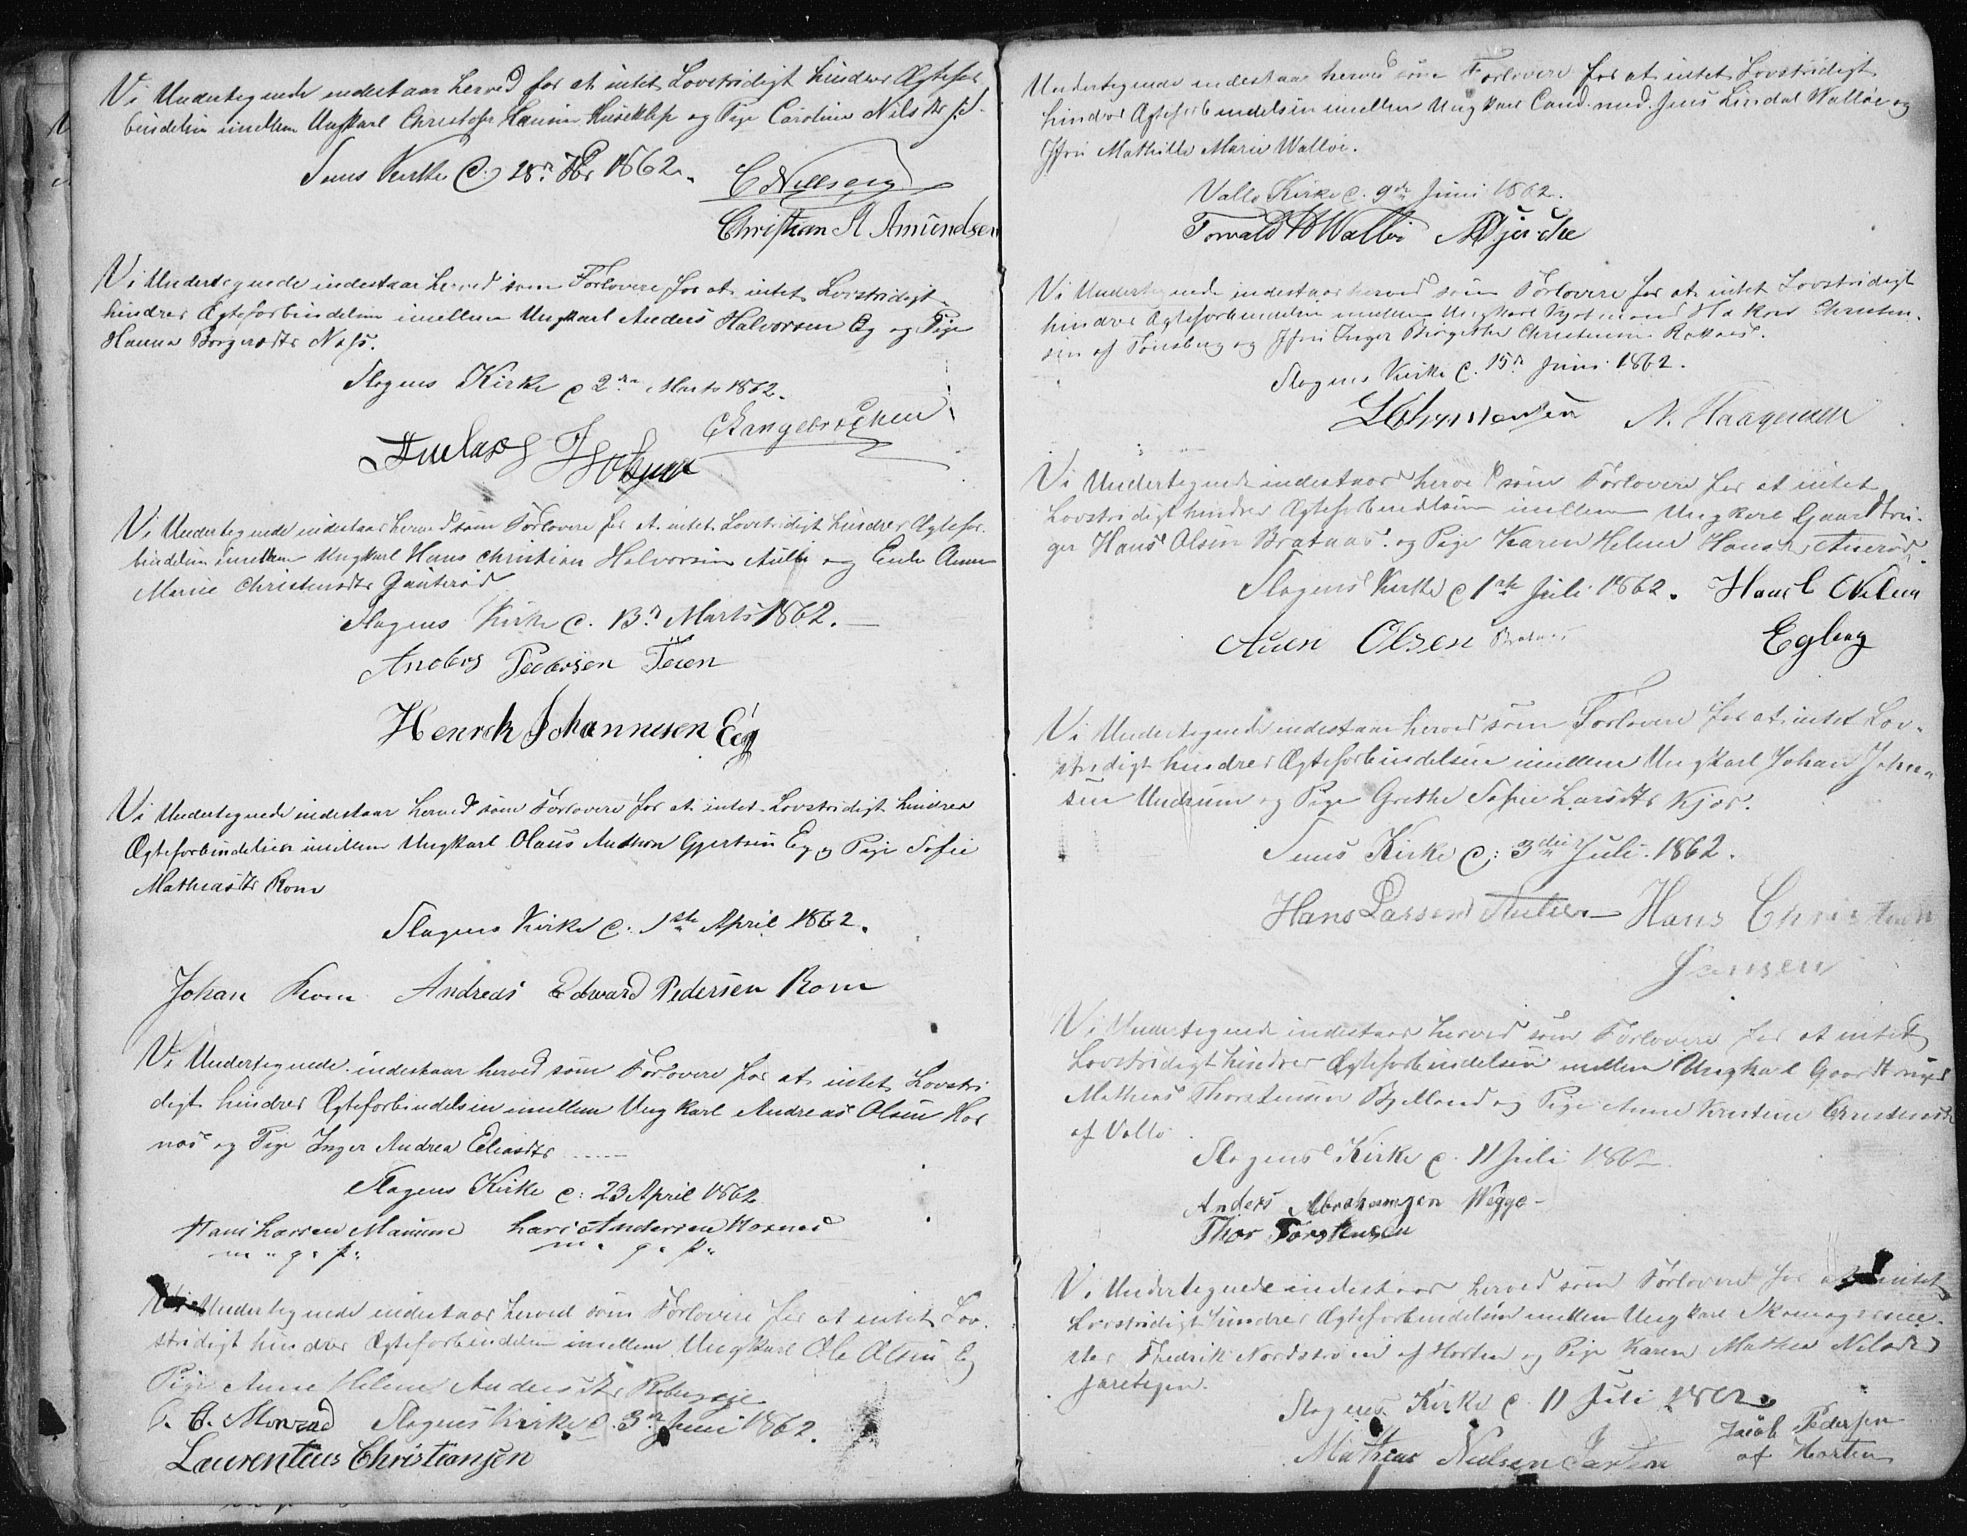 Vi Undertegnede indestaar herved for at intet Lovstridigt hindrer Ægtefor-
bindelsen imellem Ungkarl Christofer Hansen og Pige Caroline Nilsdtr
Sems Kirke d. 28de 1862.
C Nillsen
Christian A Amundsen
Vi Undertegnede indestaar herved som Forlovere for at intet Lovstridigt
hindrer Ægteforbindelsen imellem Ungkarl Anders Halvorsen Eg og Pige
Hanna Borgersdtr Næss.
Slagens Kirke d 2den Marts 1862.
C Langebrekken
Vi Undertegnede indestaar herved som Forlovere for at intet Lovstridigt hindrer Ægtefor-
bindelsen imellem Ungkarl Hans Christian Halvorsen Aulie og Enke Anne
Marie Christensdtr Gauterød
Slagens Kirke d. 13de Marts 1862.
Anders Pedersen Teien
Henrik Johannesen Eeg
Vi Undertegnede indestaar herved som Forlovere for at intet Lovstridigt hindrer
Ægteforbindelsen imellem Ungkarl Olaus Anthon Gjertsen Eg og Pige Sofie
Mathiasdtr Rom
Slagens Kirke d. 1ste April 1862.
Johan Rom Andreas Edward Pedersen Rom
Vi Undertegnede indestaar herved som Forlovere for at intet Lovstri
digt hindrer Ægteforbindelsen imellem Ungkarl Andreas Olsen Hor
næs og Pige Inger Andrea Eliasdtr
Slagens Kirke d: 23 April 1862
Hans Larsen Lars Andersen Hornæs
m. g. p. m. g. p.
Vi Undertegnede indestaar herved som Forlovere for at intet Lov-
stridigt hindrer Ægteforbindelsen imellem Ungkarl Ole Olsen Eg
Pige Anne Helene Andersdtr
C. Monrad Slagens Kirke d. 3de Juni 1862.
Laurentius Christiansen
Undertegnede indestaar herved som Forlovere for at intet Lovstridigt
hindrer Ægteforbindelsen imellem Ungkarl Cand. med. Jens Lindal Walløe og
Jfru Mathilde Marie Walløe.
Vallø Kirke d. 9de Juni 1862.
Torwald Walløe
Vi Undertegnede indestaar herved som Forlovere for at intet Lovstridigt
hindrer Ægteforbindelsen imellem Ungkarl Hakon Christen-
sen af Tønsberg og Jfru Inger Birgitte Christensen
Slagens Kirke d. 15de Juni 1862.
L Christensen N. Haagensen
Vi Undertegnede indestaar herved som Forlovere for at intet
Lovstridigt hindrer Ægteforbindelsen imellem Ungkarl Gaardbru-
ger Hans Olsen Brataas og Pige Karen Helene Hansdtr
Slagens Kirke d 1ste Juli 1862. Hans C Nilsen
Olsen Egberg
Vi Undertegnede indestaar herved som Forlovere for at intet Lov-
stridigt hindrer Ægteforbindelsen imellem Ungkarl Johan Johan-
sen Undrum og Pige Grethe Sofie Larsdtr Kjær.
Sems Kirke d: 3die Juli 1862.
Hans Larsen Aulie Hans Christian
Jansen
Vi Undertegnede indestaar herved som Forlovere for at intet
Lovstridigt hindrer Ægteforbindelsen imellem Ungkarl Gaardbruger
Mathias Thorstensen Bjelland og Pige Anne Kristine Christensdtr
af Vallø
Slagens Kirke d. 11 Juli 186
Anders Abrahamsen Wegge
Thor Torstensen
Vi Undertegnede indestaar herved som Forlovere for at intet
Lovstridigt hindrer Ægteforbindelsen imellem Ungkarl Skomagerme-
ster Fredrik Nordstrøm af Horten og Pige Karen Mathea Nilsdtr
Jareteigen.
Slagens Kirke d. 11 Juli 1862
Mathias Nielsen
Jacob Pedersen
af Horten